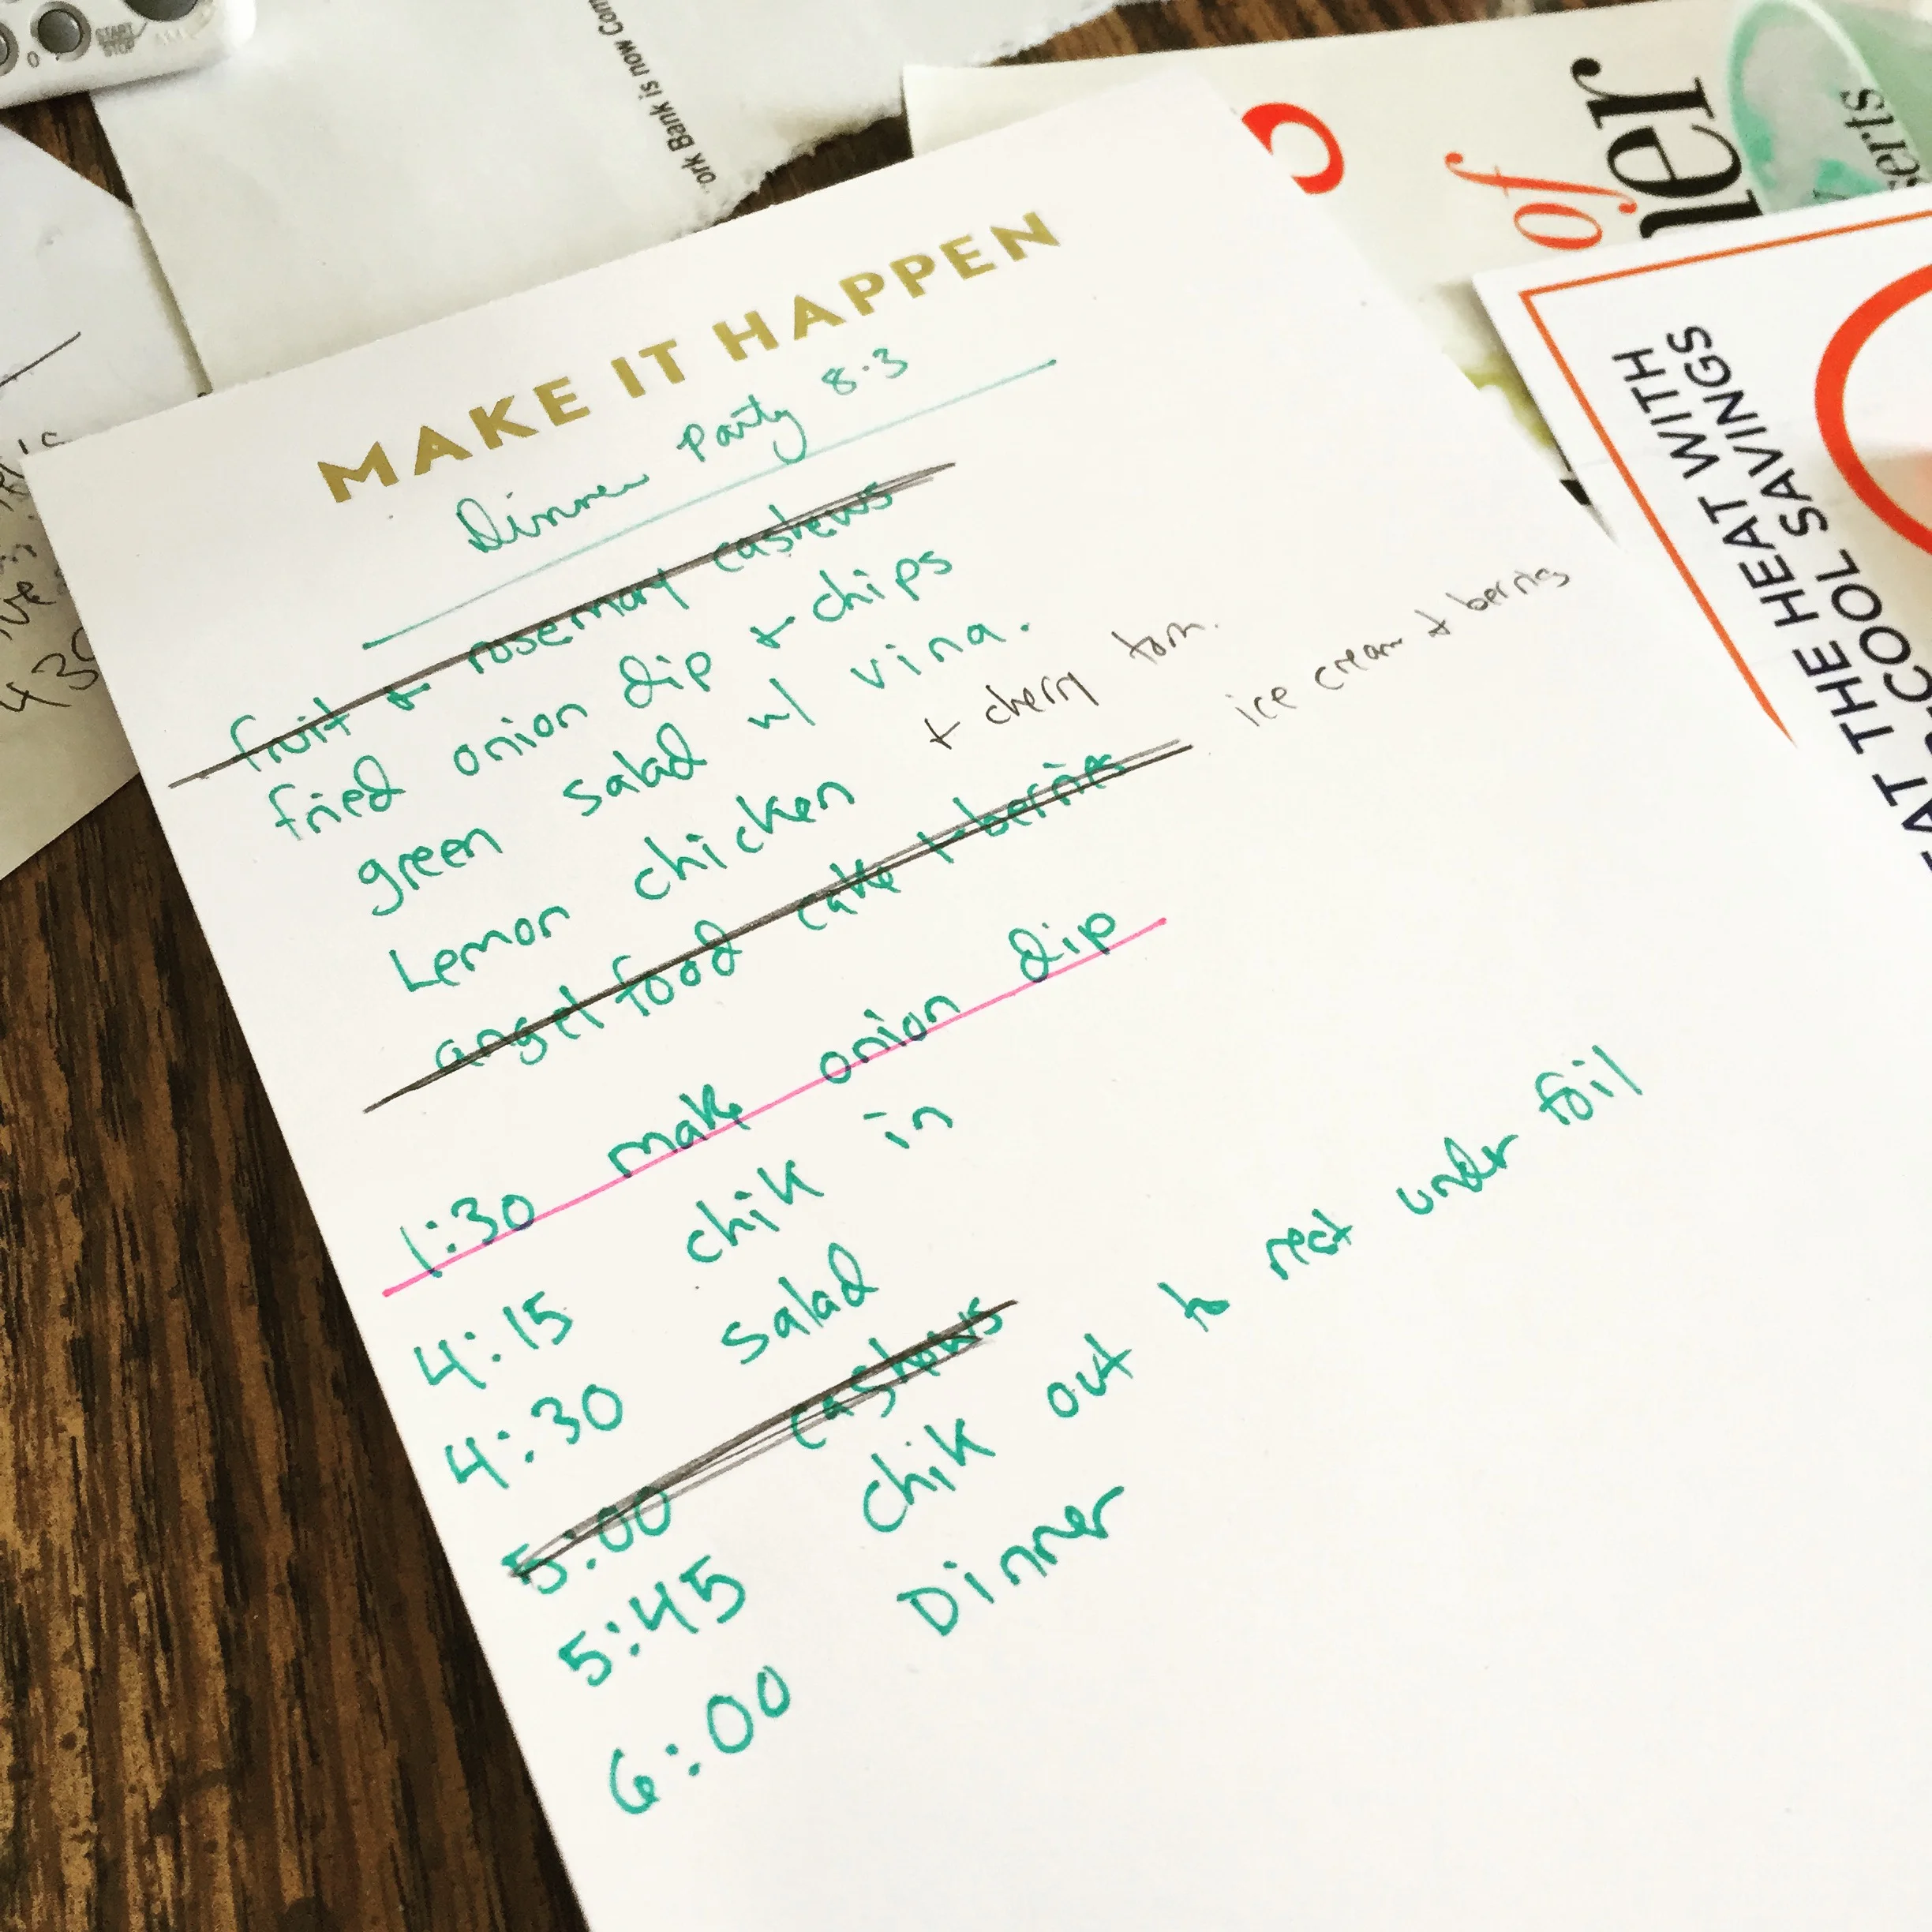 MAKE IT HAPPEN
Dinner Party 8.3
fruit + rosemary cashews
fried onion dip + chips
green salad w/ vina.
Lemon chicken + cherry tom.
angel food cake + berries ice cream + berries
1:30 make onion dip
4:15 chik in
4:30 salad
5:00 cashews
5:45 chik out to rest under foil
6:00 Dinner
START/
STOP
0
ork Bank is now Com
430
of
ler
erts
AT THE HEAT WITH
COOL SAVINGS